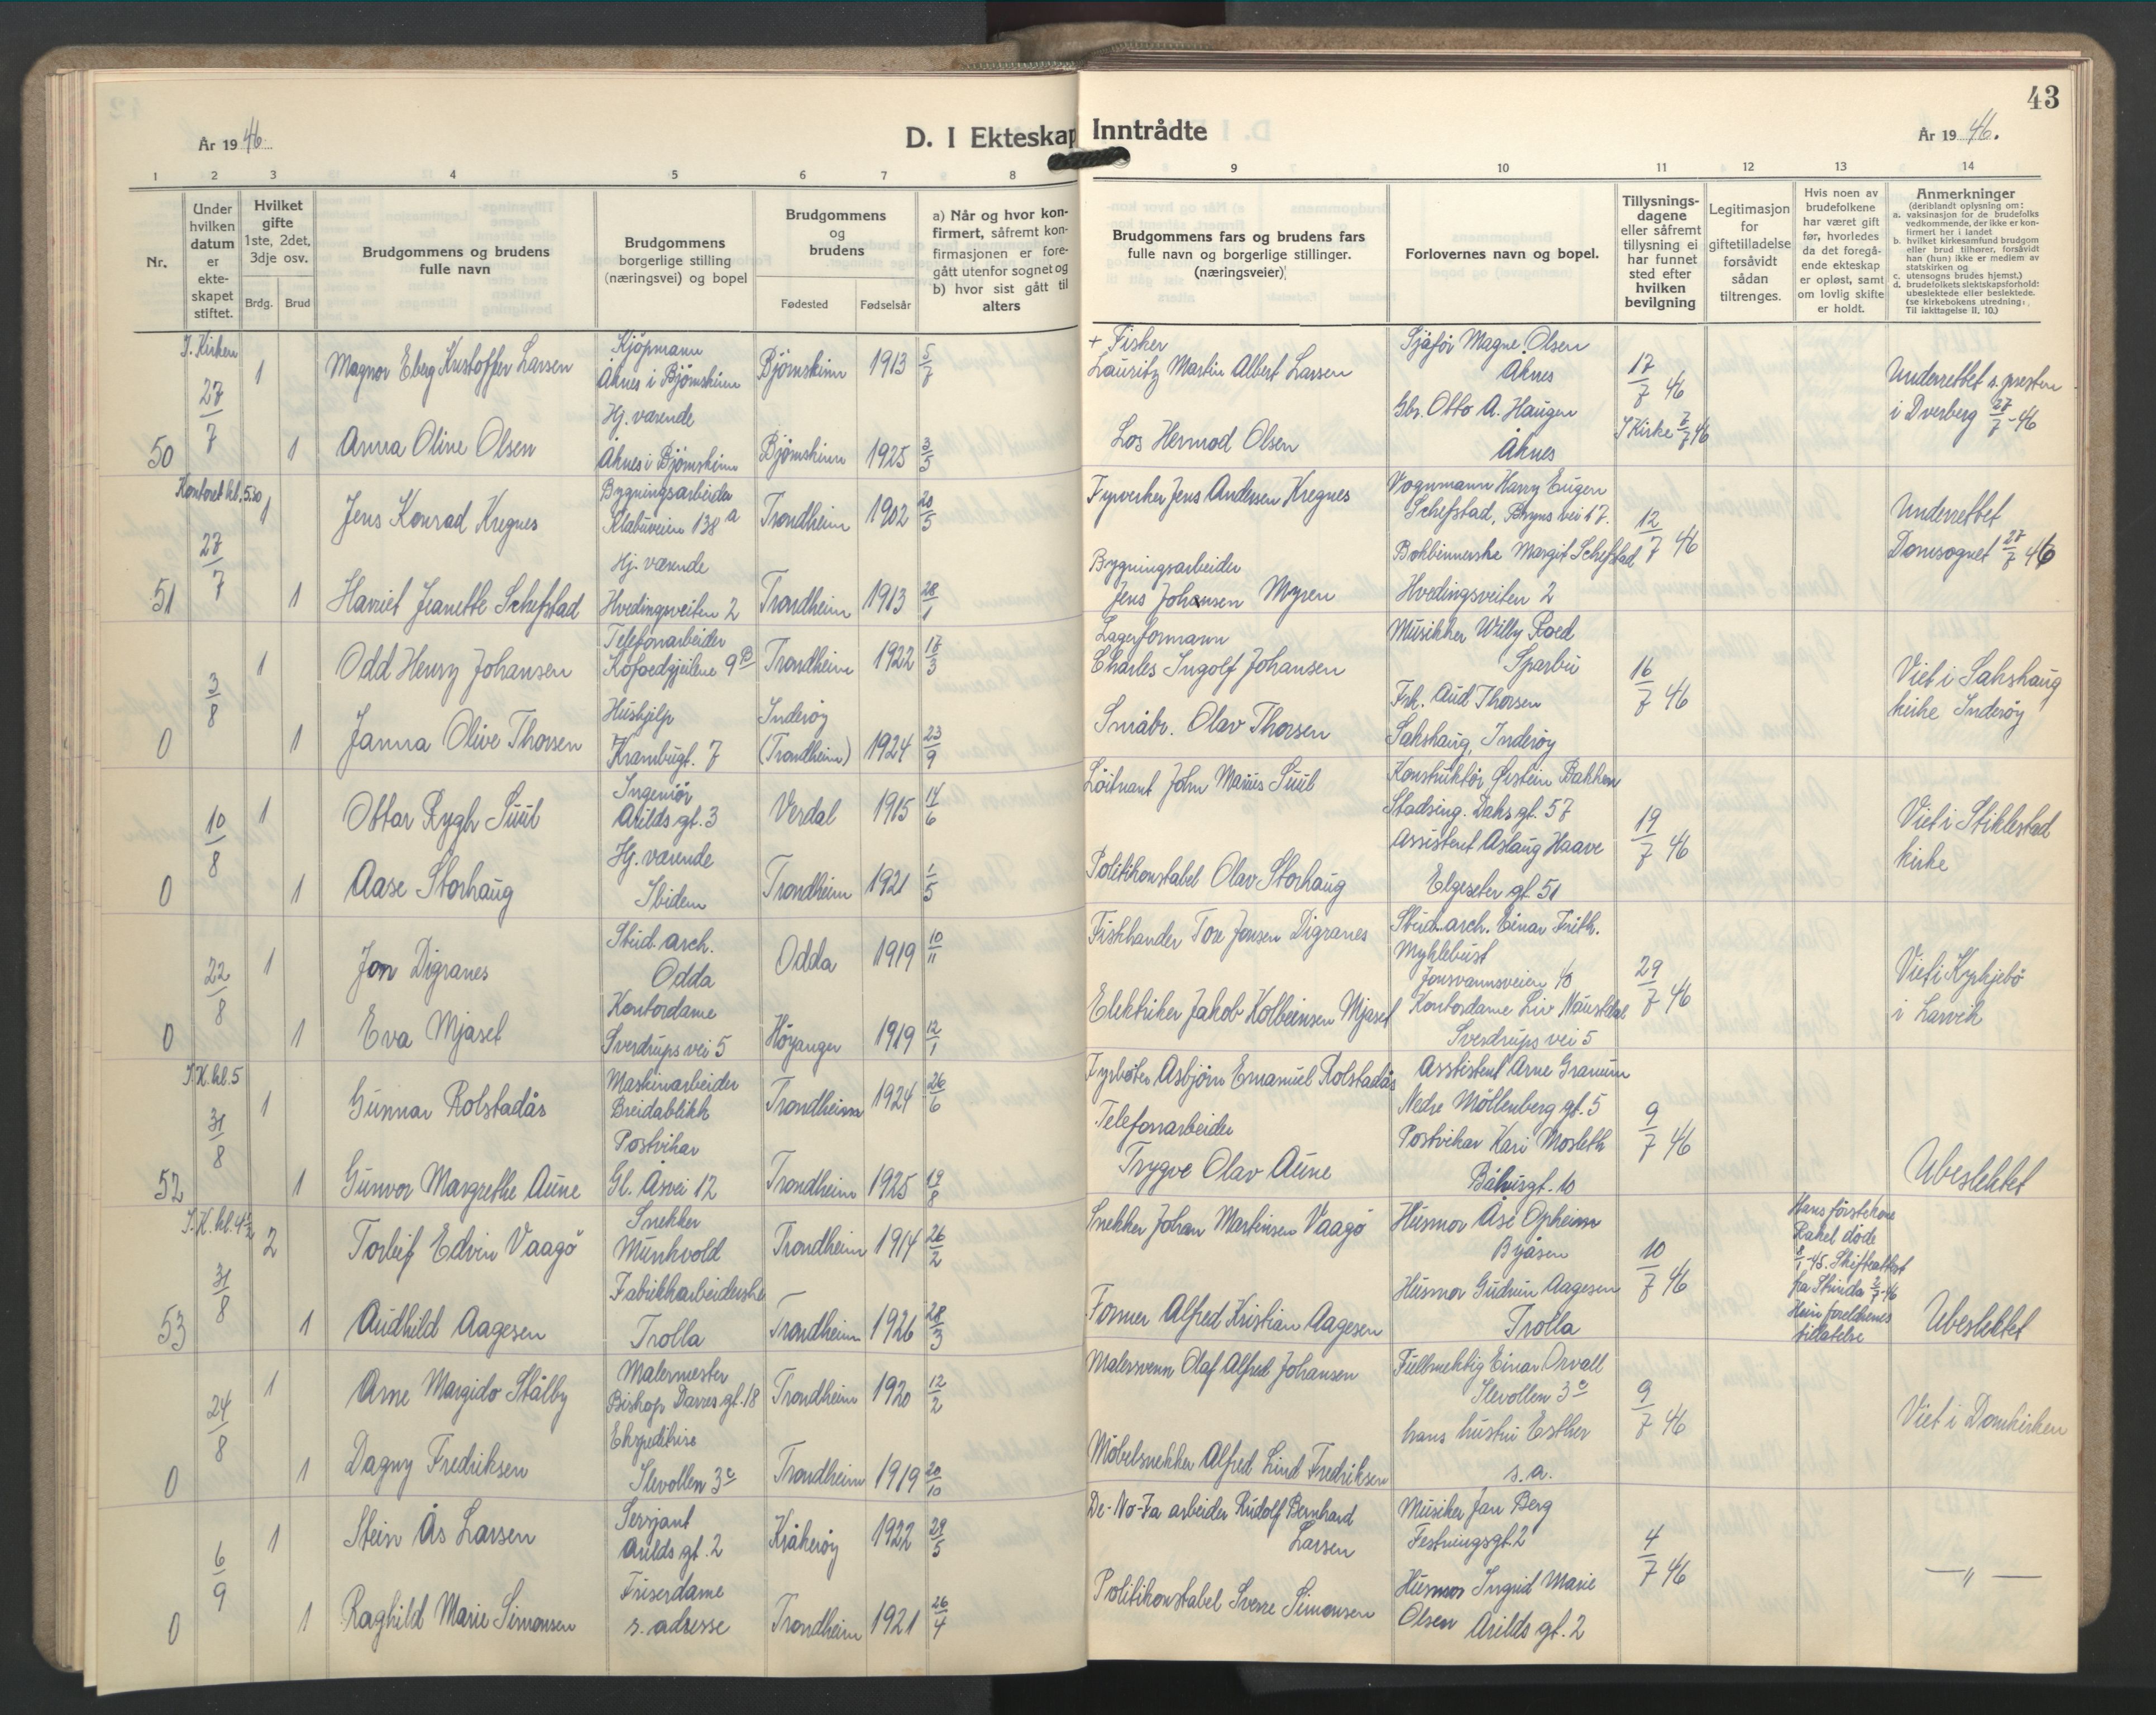 43
År 1946.
D. I Ekteskap
Inntrådte
År 1946.
1 2 3 4 5 6 7 8 9 10 11 12 13 14
Nr.
Under hvilken datum er ekte-skapet stiftet.
Hvilket gifte 1ste, 2det, 3dje osv.
Brdg. Brud
Brudgommens og brudens
fulle navn
Brudgommens
borgerlige stilling
(næringsvei) og bopel
Brudgommens
og
brudens
Fødested Fødselsår
a) Når og hvor kon-
firmert, såfremt kon-
firmasjonen er fore-
gått utenfor sognet og
b) hvor sist gått til
alters
Brudgommens fars og brudens fars
fulle navn og borgerlige stillinger.
(næringsveier)
Forlovernes navn og bopel.
Tillysnings-
dagene
eller såfremt
tillysning ei
har funnet
sted efter
hvilken
bevilgning
Legitimasjon
for
giftetilladelse
forsåvidt
sådan
tiltrenges.
Hvis noen av
brudefolkene
har været gift
før, hvorledes
da det foregå-
ende ekteskap
er opløst, samt
om lovlig skifte
er holdt.
Anmerkninger
(deriblandt oplysning om:
a. vaksinasjon for de brudefolks
vedkommende, der ikke er kon-
firmert her i landet
b. hvilket kirkesamfund brudgom
eller brud tilhører, forsåvidt
han (hun) ikke er medlem av
statskirken og
c. utensogns brudes hjemst.)
d. brudefolkets slektskapsforhold:
ubeslektede eller beslektede.
(se kirkebokens utredning:
Til iakttagelse II. 10.)
I. Kirken
27/7
1
Magnor Eberg Kristoffer Larsen
Kjøpmann
Åknes i Bjørnskinn
Bjørnskinn 1913 5/7
+ Fisker
Lauritz Martin Albert Larsen
Sjåfør Magne Olsen
Åknes
17/7 46
Underrettet s. presten
i Dverberg 27/7-46
50
1
Anna Oline Olsen
Hj. værende
Åknes i Bjørnskinn
Bjørnskinn 1925 3/5
Los Hermod Olsen
Gbr. Otto A. Haugen
Åknes
I Kirke 7/7 46
Kontoret kl. 5.30
27/7
1
Jens Konrad Kregnes
Bygningsarbeider
Klæbuveien 138 a
Trondheim 1902 20/5
Fyrverker Jens Andersen Kregnes
Vognmann Harry Eugen
Schefstad, Bryns vei 17.
12/7 46
Underrettet
Domsognet 27/7 46
51
1
Harriet Jeanette Schefstad
Hj. værende
Hvedingsveiten 2
Trondheim 1913 28/1
Bygningsarbeider
Jens Johansen Myren
Bokbinnerske Margit Schefstad
Hvedingsveiten 2
3/8
1
Odd Henry Johansen
Telefonarbeider
Kofoedgjeilene 9 B
Trondheim 1922 17/3
Lagerformann
Charles Ingolf Johansen
Musikker Willy Roed
Sparbu
16/7 46
Viet i Sakshaug
kirke Inderøy
0
1
Janna Olive Thorsen
Hushjelp
Krambugt. 7
Inderøy
(Trondheim) 1924 23/9
Småbr. Olav Thorsen
Frk. Aud Thorsen
Sakshaug, Inderøy
10/8
1
Ottar Rygh Suul
Ingeniør
Arilds gt. 3
Verdal 1915 14/6
Løitnant John Marius Suul
Konstruktør Øistein Bakken
Stadsing. Dahs gt. 57
19/7 46
Viet i Stiklestad
kirke
0
1
Aase Storhaug
Hj. værende
Ibidem
Trondheim 1921 1/5
Politikonstabel Olav Storhaug
Assistent Aslaug Haave
Elgeseter gt. 51
22/8
1
Jon Digranes
Stud. arch.
Odda
Odda 1919 10/11
Fiskhandler Tore Jonsen Digranes
Stud. arch. Einar Frith.
Myklebust
Jonsvannsveien 40
29/7 46
Viet i
i Larvik
0
1
Eva Mjaset
Kontordame
Sverdrups vei 5
Höyanger 1919 12/1
Elektriker Jakob Kolbeinsen Mjaset
Kontordame Liv Naustdal
Sverdrups vei 5
I. K. kl. 5
31/8
1
Gunnar Rolstadås
Maskinarbeider
Breidablikk
Trondheim 1924 26/6
Fyrbøter Asbjørn Emanuel Rolstadås
Asstistent Arne Granum
Nedre Möllenberg gt. 5
9/7 46
Ubeslektet
52
1
Gunvor Margrethe Aune
Postvikar
Gl. Åsvei 12
Trondheim 1925 17/8
Telefonarbeider
Trygve Olav Aune
Postvikar Kari Mosleth
Båhusgt. 10
I. K. kl. 4 1/2
31/8
2
Torleif Edvin Vaagö
Snekker
Munkvold
Trondheim 1914 26/2
Snekker Johan Martinsen Vaagö
Husmor Åse Opheim
Byåsen
10/7 46
Hans förstekone
Rakel døde
8/1-45. Skifteattest
fra Strinda 2/7-46
Hun foreldrenes
tillatelse
Ubeslektet
53
1
Audhild Aagesen
Fabrikkarbeiderske
Trolla
Trondheim 1926 28/3
Former Alfred Kristian Aagesen
Husmor Gudrun Aagesen
Trolla
24/8
1
Arne Margido Stålby
Malermester
Biskop Darres gt. 18
Trondheim 1920 12/2
Malersvenn Olaf Alfred Johansen
Fullmektig Einar Orvall
Ilevollen 3 c
9/7 46
Viet i Domkirken
0
1
Dagny Fredriksen
Ekspeditrise
Ilevollen 3 c
Trondheim 1919 20/10
Möbelsnekker Alfred Lind Fredriksen
hans hustru Esther
s. a.
6/9
1
Stein Ås Larsen
Sersjant
Arilds gt. 2
Kråkerøy 1922 29/5
De-No-Fa arbeider Rudolf Bernhard
Larsen
Musiker Jan Berg
Festningsgt. 2
4/7 46
— " —
0
1
Raghild Marie Simonsen
Friserdame
s. adresse
Trondheim 1921 26/4
Politikonstabel Sverre Simonsen
Husmor Ingrid Marie
Olsen Arilds gt. 2